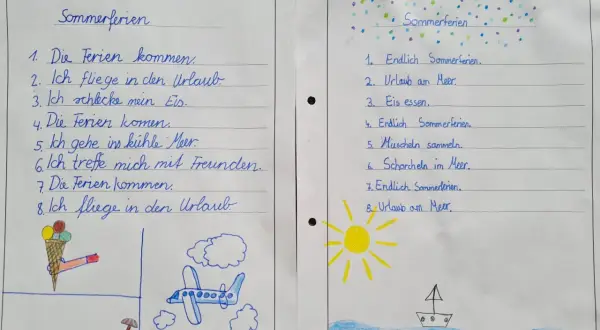 Sommerferien
1. Die Ferien kommen.
2. Ich fliege in den Urlaub
3. Ich schlecke mein Eis.
4. Die Ferien komen.
5. Ich gehe ins kühle Meer.
6. Ich treffe mich mit Freunden.
7. Die Ferien kommen.
8. Ich fliege in den Urlaub
Sommerferien
1. Endlich Sommerferien.
2. Urlaub am Meer.
3. Eis essen.
4. Endlich Sommerferien.
5. Muscheln sammeln.
6. Schorcheln im Meer.
7. Endlich Sommerferien.
8. Urlaub am Meer.